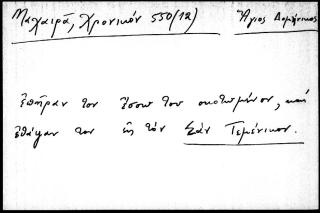 Μαχαιρά, Χρονικόν 550/(12) Ἅγιος Δομήνικος
ἐπῆραν τον ἔσσω του σκοτωμένον, καὶ
ἐθάψαν τον εἰς τὸν Σὰν Τεμένικον.